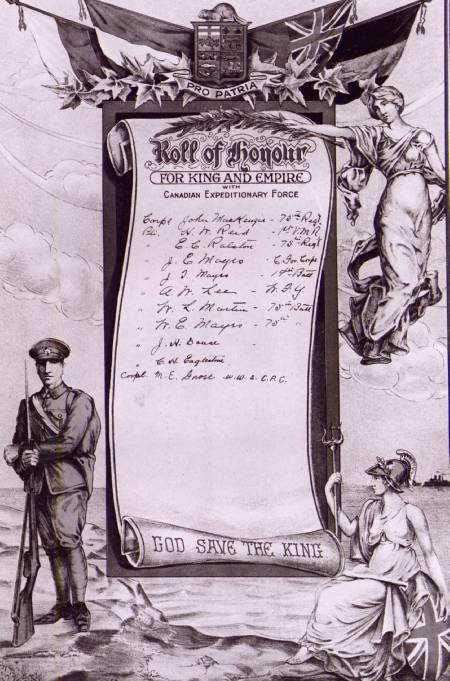 PRO PATRIA
Roll of Honour
FOR KING AND EMPIRE
WITH
CANADIAN EXPEDITIONARY FORCE
Corpl John MacKenzie - 75th Regt
Pte. H. W. Reid - 1st V.M.R
" E. C. Ralston - 75th Regt
" J. E. Mayrs - C For. Corps
" J. I. Mayrs - Batt
" A. W. Lee -
" W. L. Martin - 75th Batt
" W. E. Mayrs - 75th "
" J. H.
" C. H.
Corpl. M. E. C.P.C.
GOD SAVE THE KING